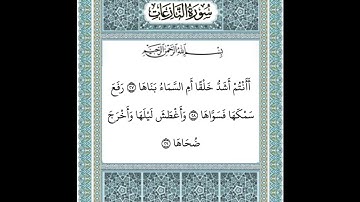 سورة النازعات
بسم الله الرحمن الرحيم
أَأَنْتُمْ أَشَدُّ خَلْقًا أَمِ السَّمَاءُ بَنَاهَا ٢٧ رَفَعَ
سَمْكَهَا فَسَوَّاهَا ٢٨ وَأَغْطَشَ لَيْلَهَا وَأَخْرَجَ
ضُحَاهَا ٢٩